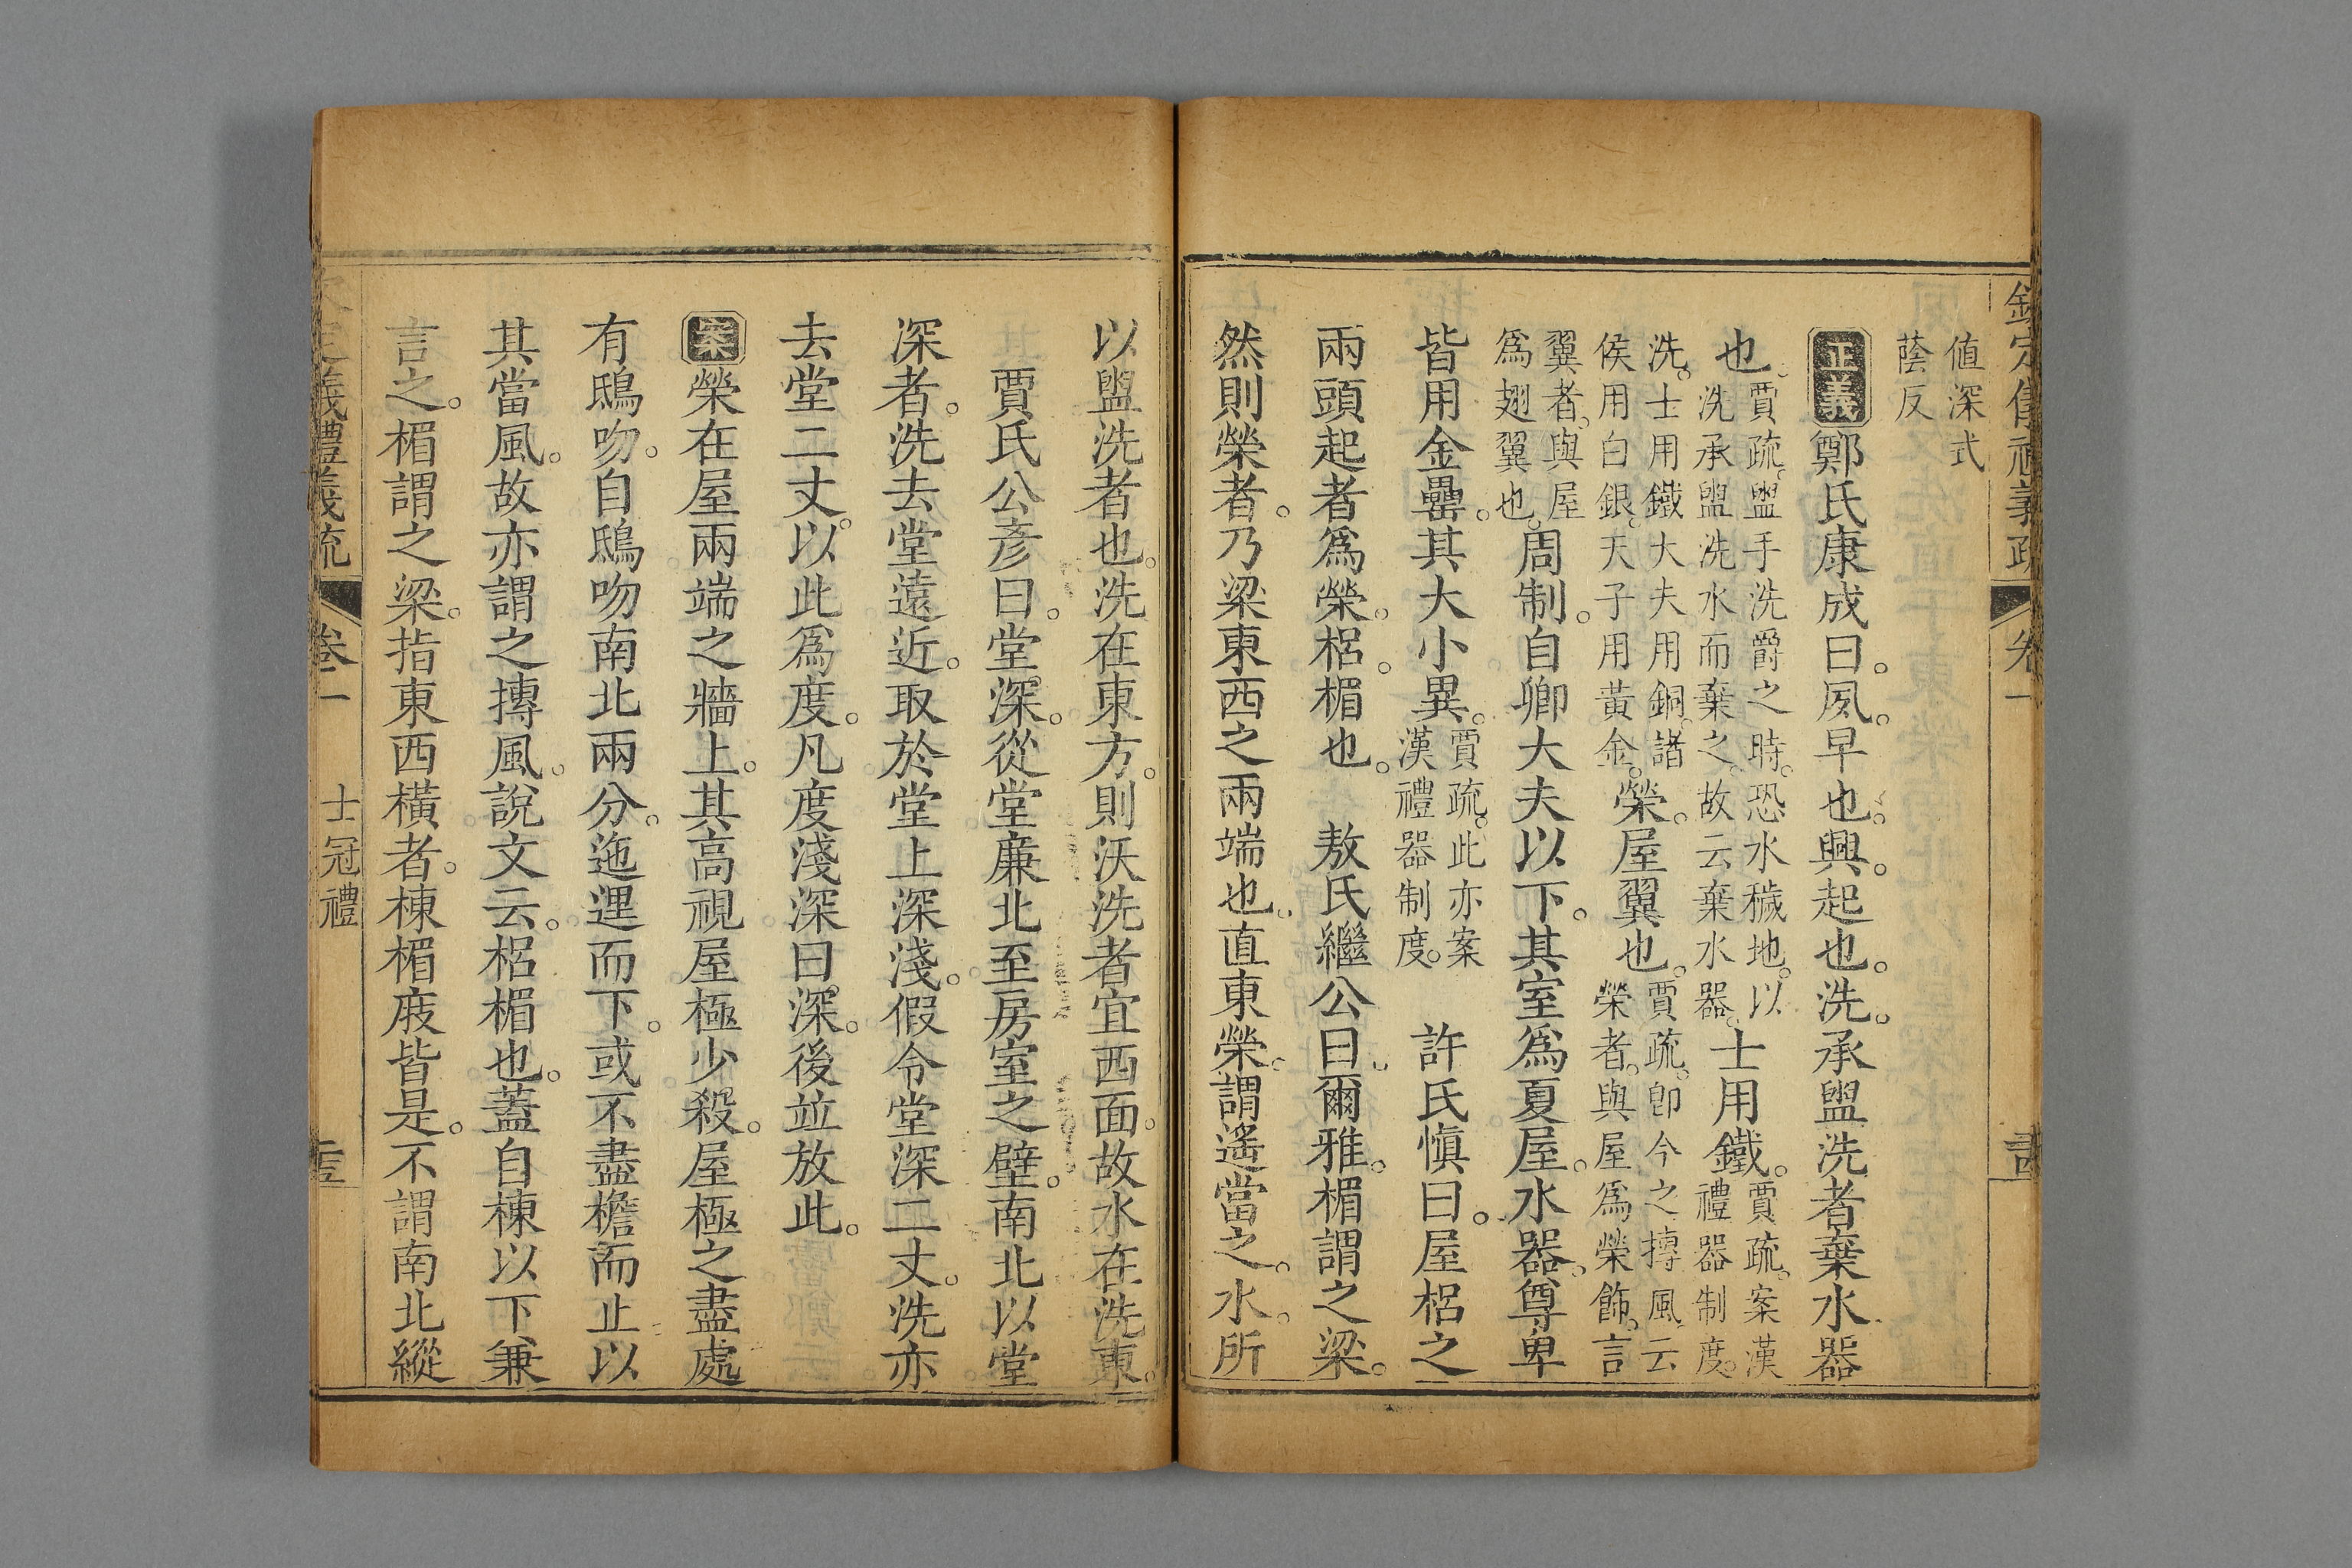 欽定儀禮義疏 卷一
值深式
蔭反
正義鄭氏康成曰。夙。早也。興。起也。洗。承盥洗者棄水器
也。賈疏。盥手洗爵之時。恐水穢地。以洗承盥洗水而棄之。故云棄水器。士用鐵。賈疏。案漢禮器制度。
洗。士用鐵。大夫用銅。諸侯用白銀。天子用黃金。榮。屋翼也。賈疏。卽今之摶風。云榮者。與屋爲榮飾。言
翼者。與屋爲翅翼也。周制。自卿大夫以下。其室爲夏屋。水器。尊卑
皆用金罍。其大小異。賈疏。此亦案漢禮器制度。 許氏愼曰。屋梠之
兩頭起者爲榮。梠。楣也。 敖氏繼公曰。爾雅。楣謂之梁。
然則榮者。乃梁東西之兩端也。直東榮。謂遙當之。水。所
以盥洗者也。洗在東方。則沃洗者宜西面。故水在洗東。
賈氏公彥曰。堂深。從堂廉北至房室之壁。南北以堂
深者。洗去堂遠近。取於堂上深淺。假令堂深二丈。洗亦
去堂二丈。以此爲度。凡度淺深曰深。後竝放此。
案榮在屋兩端之牆上。其高視屋極少殺。屋極之盡處
有鴟吻。自鴟吻南北兩分。迤邐而下。或不盡檐而止。以
其當風。故亦謂之摶風。說文云。梠楣也。蓋自棟以下。兼
言之。楣謂之梁。指東西橫者。棟楣庪皆是。不謂南北縱
欽定儀禮義疏 卷一 士冠禮